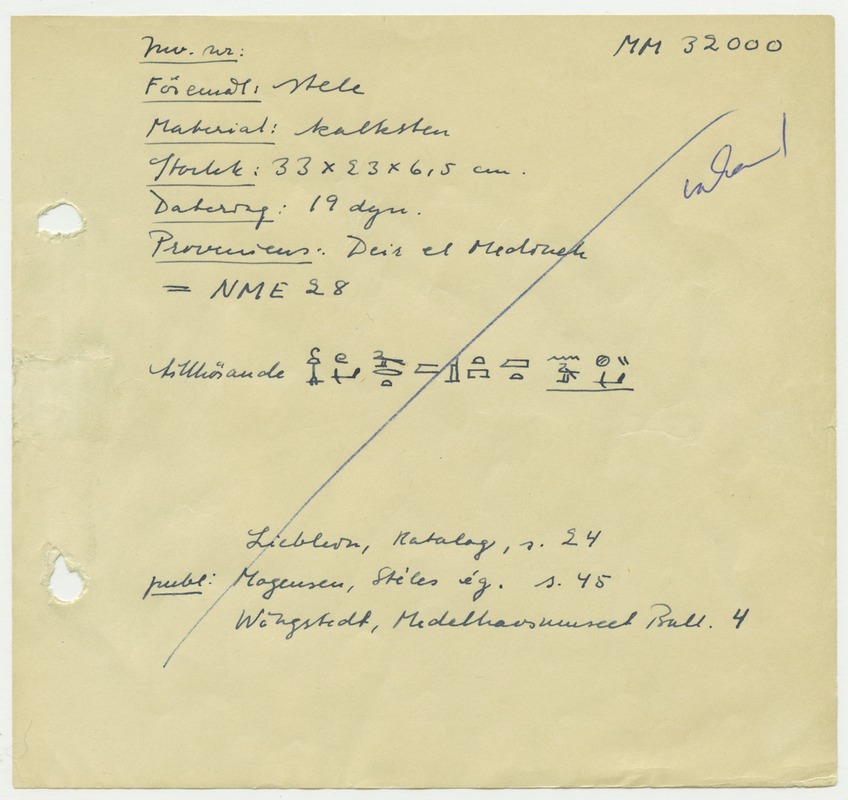 Inv. nr: MM 32000
Föremål: stele
Material: kalksten
Storlek: 33 x 23 x 6,5 cm.
Datering: 19 dyn.
Proveniens: Deir el Medineh
= NME 28
tillhörande
Lieblein, Katalog, s. 24
publ: Mogensen, Stèles ég. s. 45
Wångstedt, Medelhavsmuseet Bull. 4